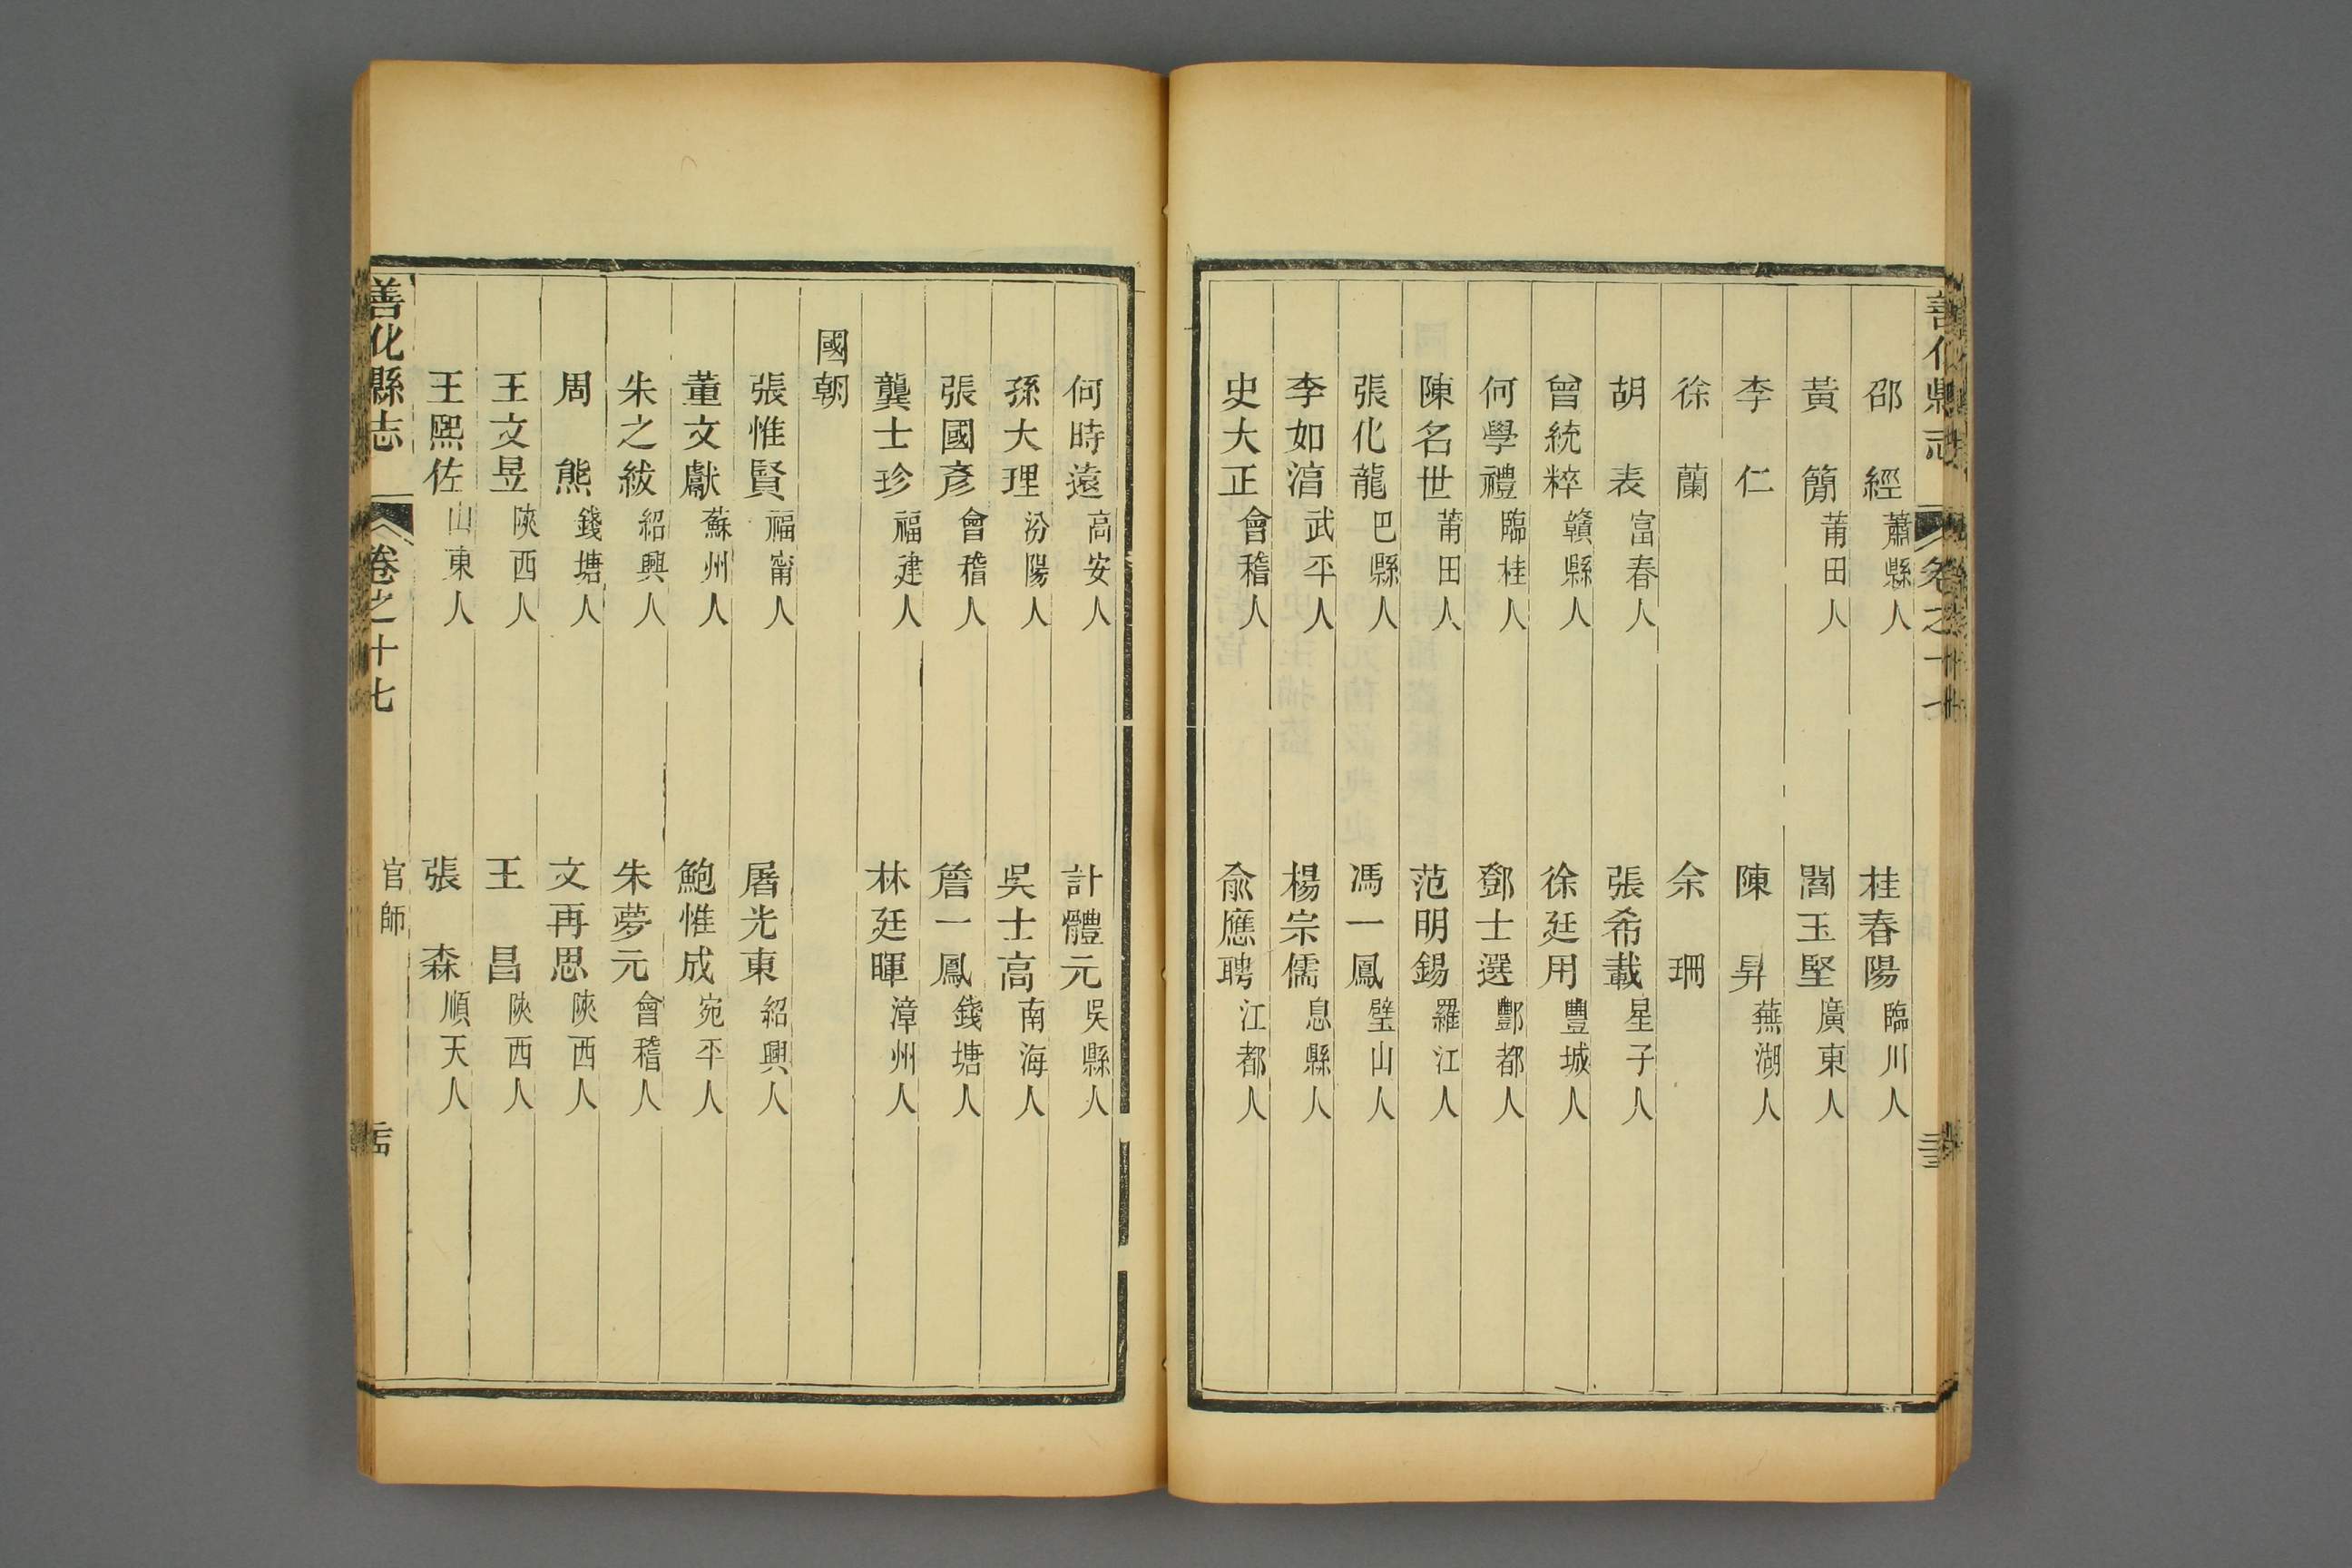 邵經蕭縣人 桂春陽臨川人
黃簡莆田人 閻玉堅廣東人
李仁 陳昇蕪湖人
徐蘭 余珊
胡表富春人 張希載星子人
曾統粹贛縣人 徐廷用豐城人
何學禮臨桂人 鄧士選酆都人
陳名世莆田人 范明錫羅江人
張化龍巴縣人 馮一鳳璧山人
李如湻武平人 楊宗儒息縣人
史大正會稽人 俞應聘江都人
何時遠高安人 計體元吳縣人
孫大理汾陽人 吳士高南海人
張國彥會稽人 詹一鳳錢塘人
龔士珍福建人 林廷暉漳州人
國朝
張惟賢福甯人 屠光東紹興人
董文獻蘇州人 鮑惟成宛平人
朱之紱紹興人 朱夢元會稽人
周熊錢塘人 文再思陝西人
王文昱陝西人 王昌陝西人
王熙佐山東人 張森順天人
善化縣志 卷之十七 官師